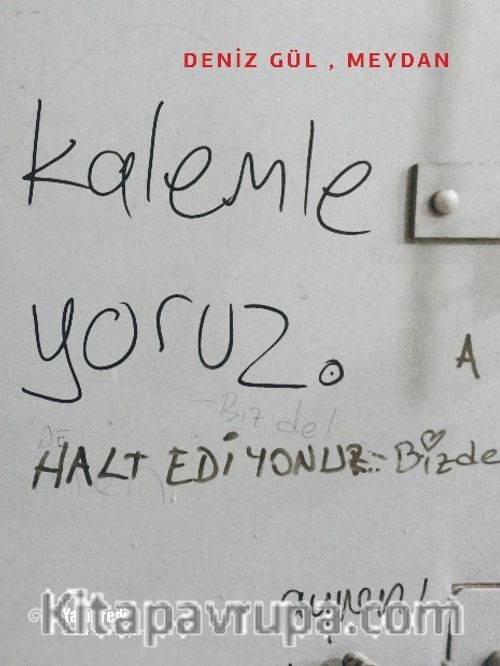 DENİZ GÜL , MEYDAN
kalemle
yoruz.
A
- Biz de!
DE
HALT EDİYONUZ.. - Bizde
aynen!
Kitapavrupa.com